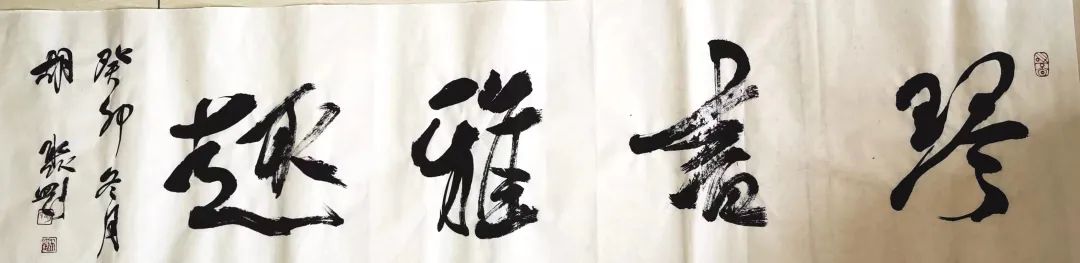 琴書雅趣
癸卯冬月
胡